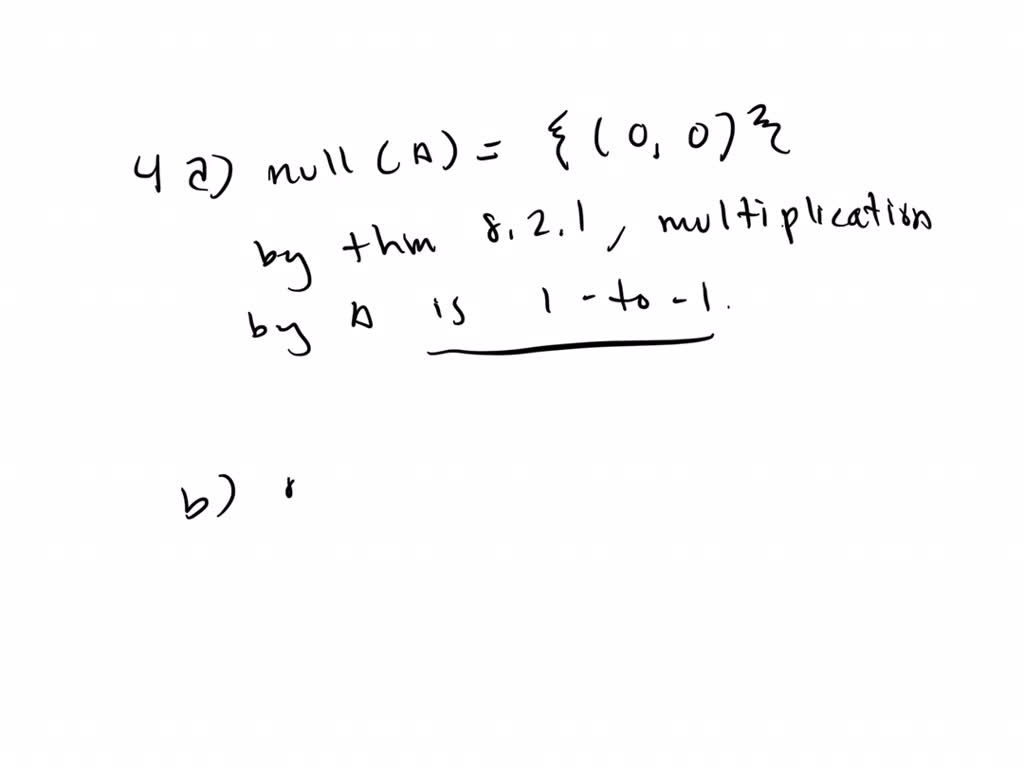 4 a) null (A) = { (0, 0) }
by thm 8.2.1, multiplication
by A is 1-to-1.
b)